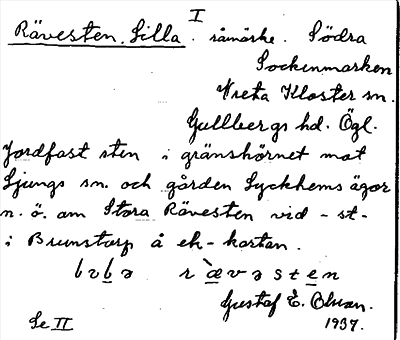 I
Rävesten, Lilla. råmärke. Södra
Sockenmarken
Vreta Kloster sn.
Gullbergs hd. Ögl.
Jordfast sten i gränshörnet mot
Ljungs sn. och gården Lyckhems ägor
n. ö. om Stora Rävesten vid -st-
i Brunstorp å ek-kartan.
Gustaf E. Olsson.
Se II 1937.